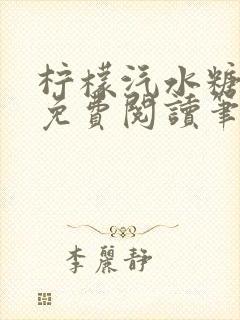 柠檬汽水糖
免費閱讀筆
李麗静